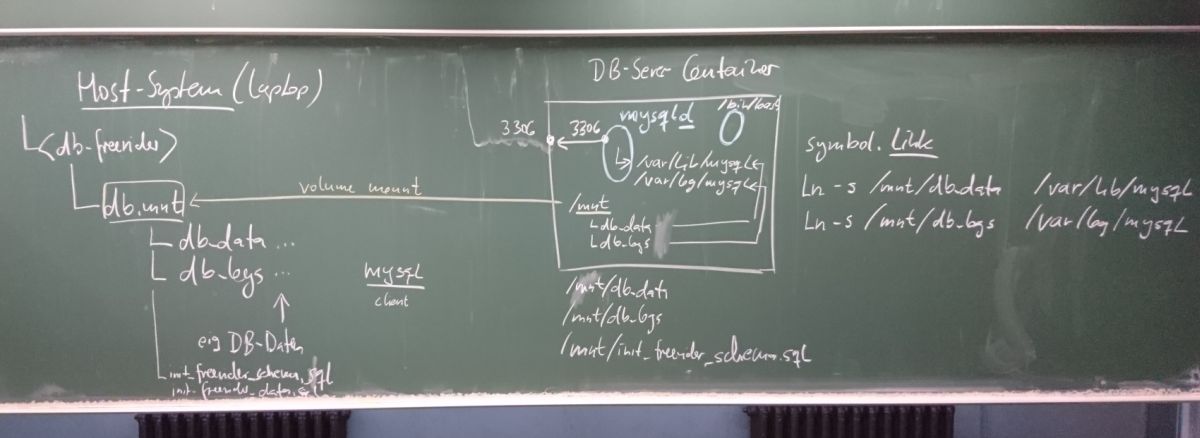 Host-System (Laptop)
<db-freender>
db.mnt
db_data ...
db_logs ...
eig DB-Daten
init_freender_schema.sql
init_freender_data.sql
mysql
client
volume mount
DB-Server Container
3306
3306
mysqld
/bin/bash
/var/lib/mysql
/var/log/mysql
/mnt
db_data
db_logs
/mnt/db_data
/mnt/db_logs
/mnt/init_freender_schema.sql
symbol. Link
Ln -s /mnt/db_data /var/lib/mysql
Ln -s /mnt/db_logs /var/log/mysql